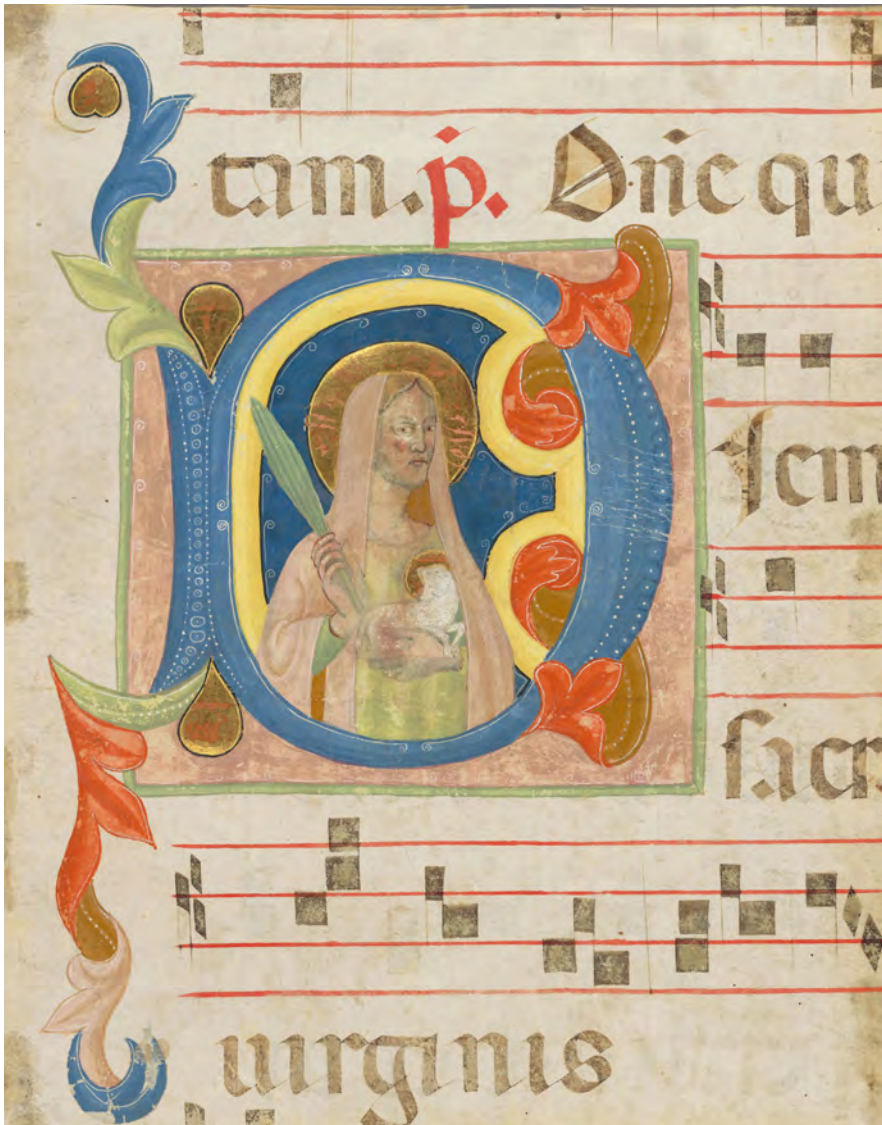 tam. p̄. Dn̄e qu
DIem
sacr
uirginis